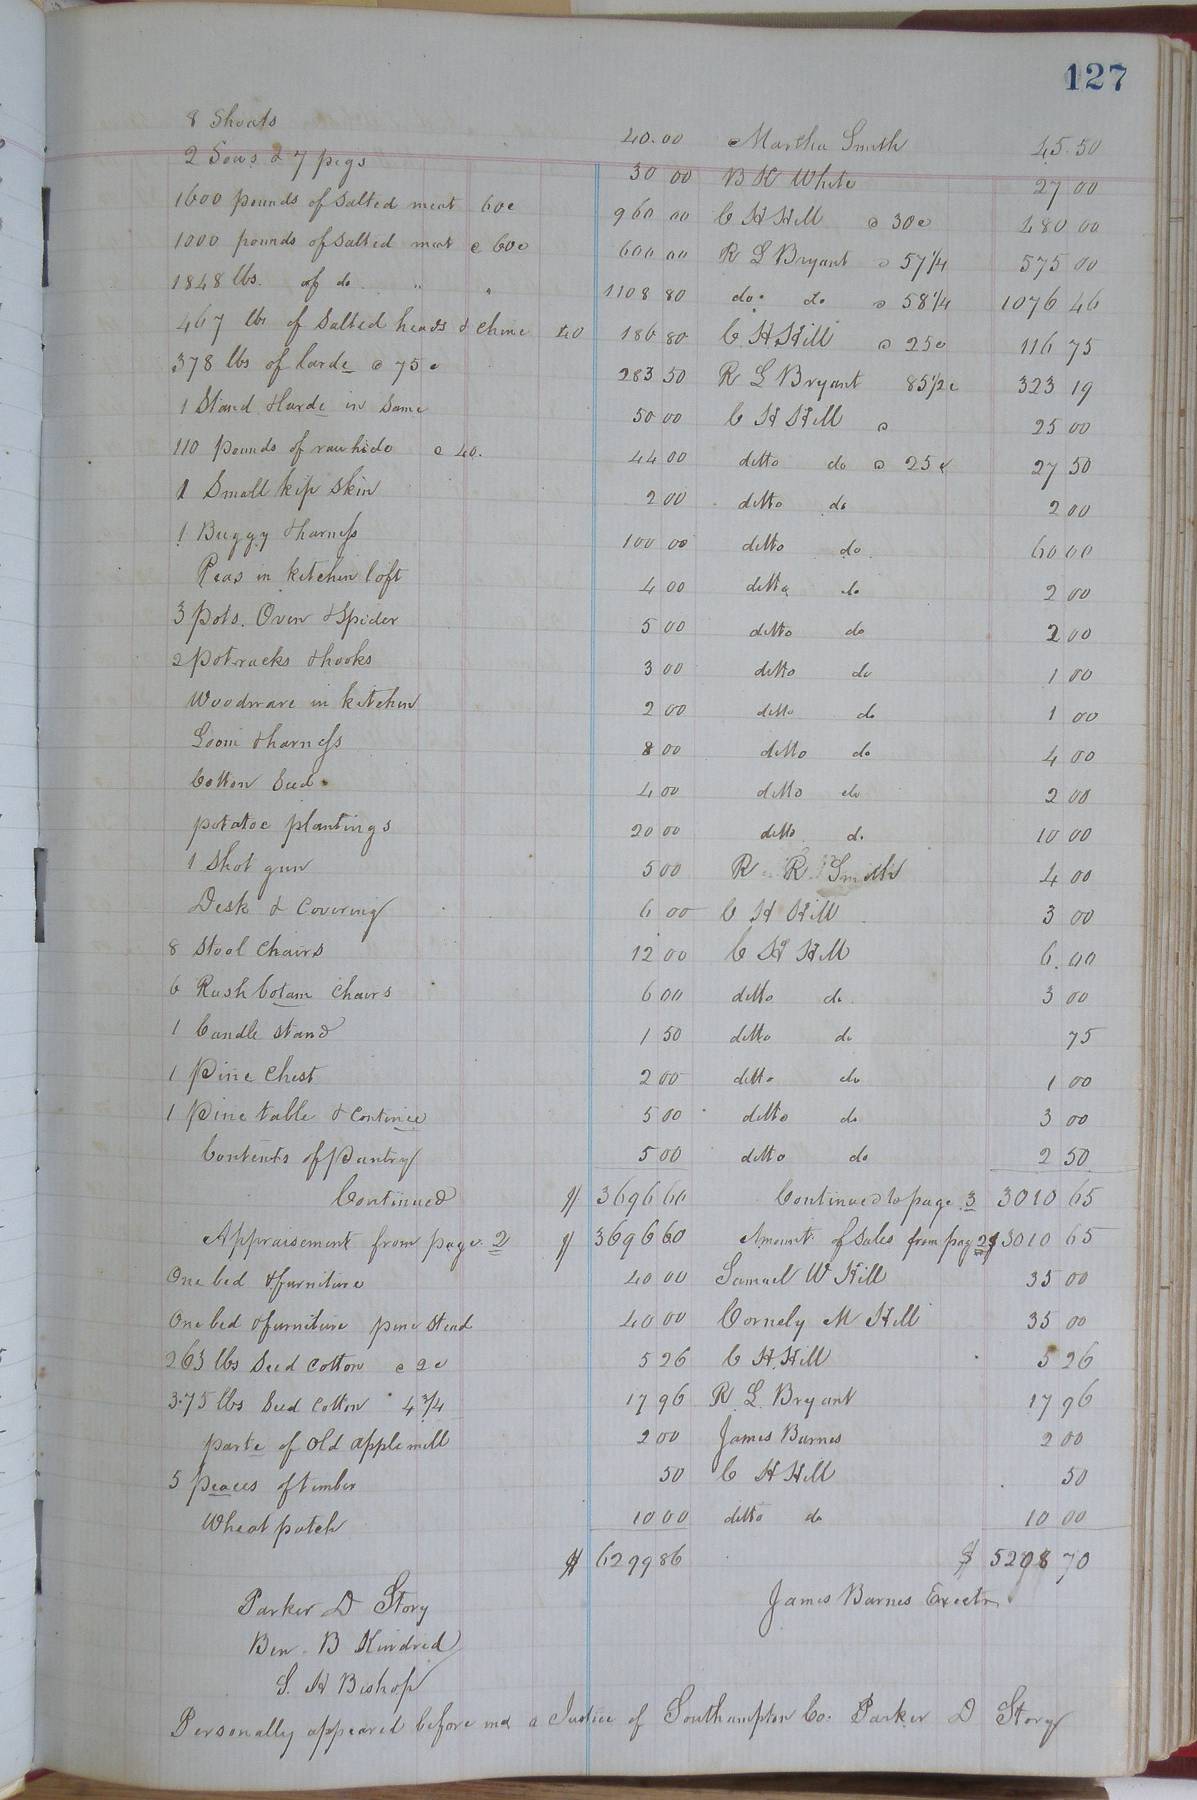 127
8 Shoats 40.00 Martha Smith 45.50
2 Sows & 7 pigs 30 00 B H White 27 00
1600 pounds of salted meat 60c 960 00 C H Hill @ 30c 480 00
1000 pounds of salted meat @ 60c 600 00 R L Bryant @ 57 1/4 575 00
1848 lbs. of do " " 1108 80 do. do @ 58 1/4 1076 46
467 lbs of salted heads & chine 40 186 80 C H Hill @ 25c 116 75
378 lbs of larde @ 75c 283 50 R L Bryant 85 1/2c 323 19
1 Stand & larde in same 50 00 C H Hill @ 25 00
110 pounds of rawhide @ 40. 44 00 ditto do @ 25c 27 50
1 Small kip skin 2 00 ditto do 2 00
1 Buggy & harness 100 00 ditto do 60 00
Peas in kitchen loft 4 00 ditto do 2 00
3 pots. Oven & Spider 5 00 ditto do 2 00
2 pot racks & hooks 3 00 ditto do 1 00
Woodware in kitchen 2 00 ditto do 1 00
Loom & harness 8 00 ditto do 4 00
Cotton Seed 4 00 ditto do 2 00
potatoe plantings 20 00 ditto do 10 00
1 Shot gun 5 00 R R Smith 4 00
Desk & Covering 6 00 C H Hill 3 00
8 Stool Chairs 12 00 C H Hill 6.00
6 Rush botam Chairs 6 00 ditto do 3 00
1 Candle Stand 1 50 ditto do 75
1 Pine Chest 2 00 ditto do 1 00
1 Pine table & Contince 5 00 ditto do 3 00
Contents of Pantry 5 00 ditto do 2 50
Continued $ 3696 60 Continued to page 3 3010 65
Appraisement from page 2 $ 3696 60 Amount of Sales from pag 2 $ 3010 65
One bed & furniture 40 00 Samuel W Hill 35 00
One bed & furniture pine Stead 40 00 Cornely M Hill 35 00
263 lbs Seed Cotton @ 2c 5 26 C H Hill 5 26
375 lbs Seed Cotton 4 3/4 17 96 R. L. Bryant 17 96
parte of old apple mill 2 00 James Barnes 2 00
5 peaces of timber 50 C H Hill 50
Wheat patch 10 00 ditto do 10 00
$ 6299 86 $ 5298 70
Parker D Story James Barnes Exectr
Ben. B Kindred
S. H Bishop
Personally appeared before me a Justice of Southampton Co. Parker D Story